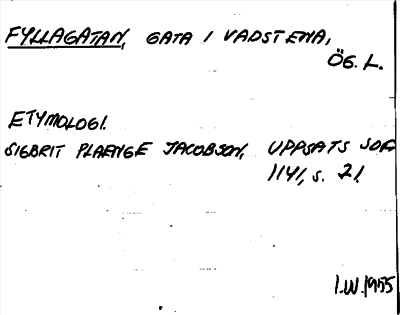 FYLLAGATAN, GATA I VADSTENA,
ÖG. L.
ETYMOLOGI.
SIGBRIT PLAENGE JACOBSON, UPPSATS SOFI
1141, s. 21.
I.W. 1955